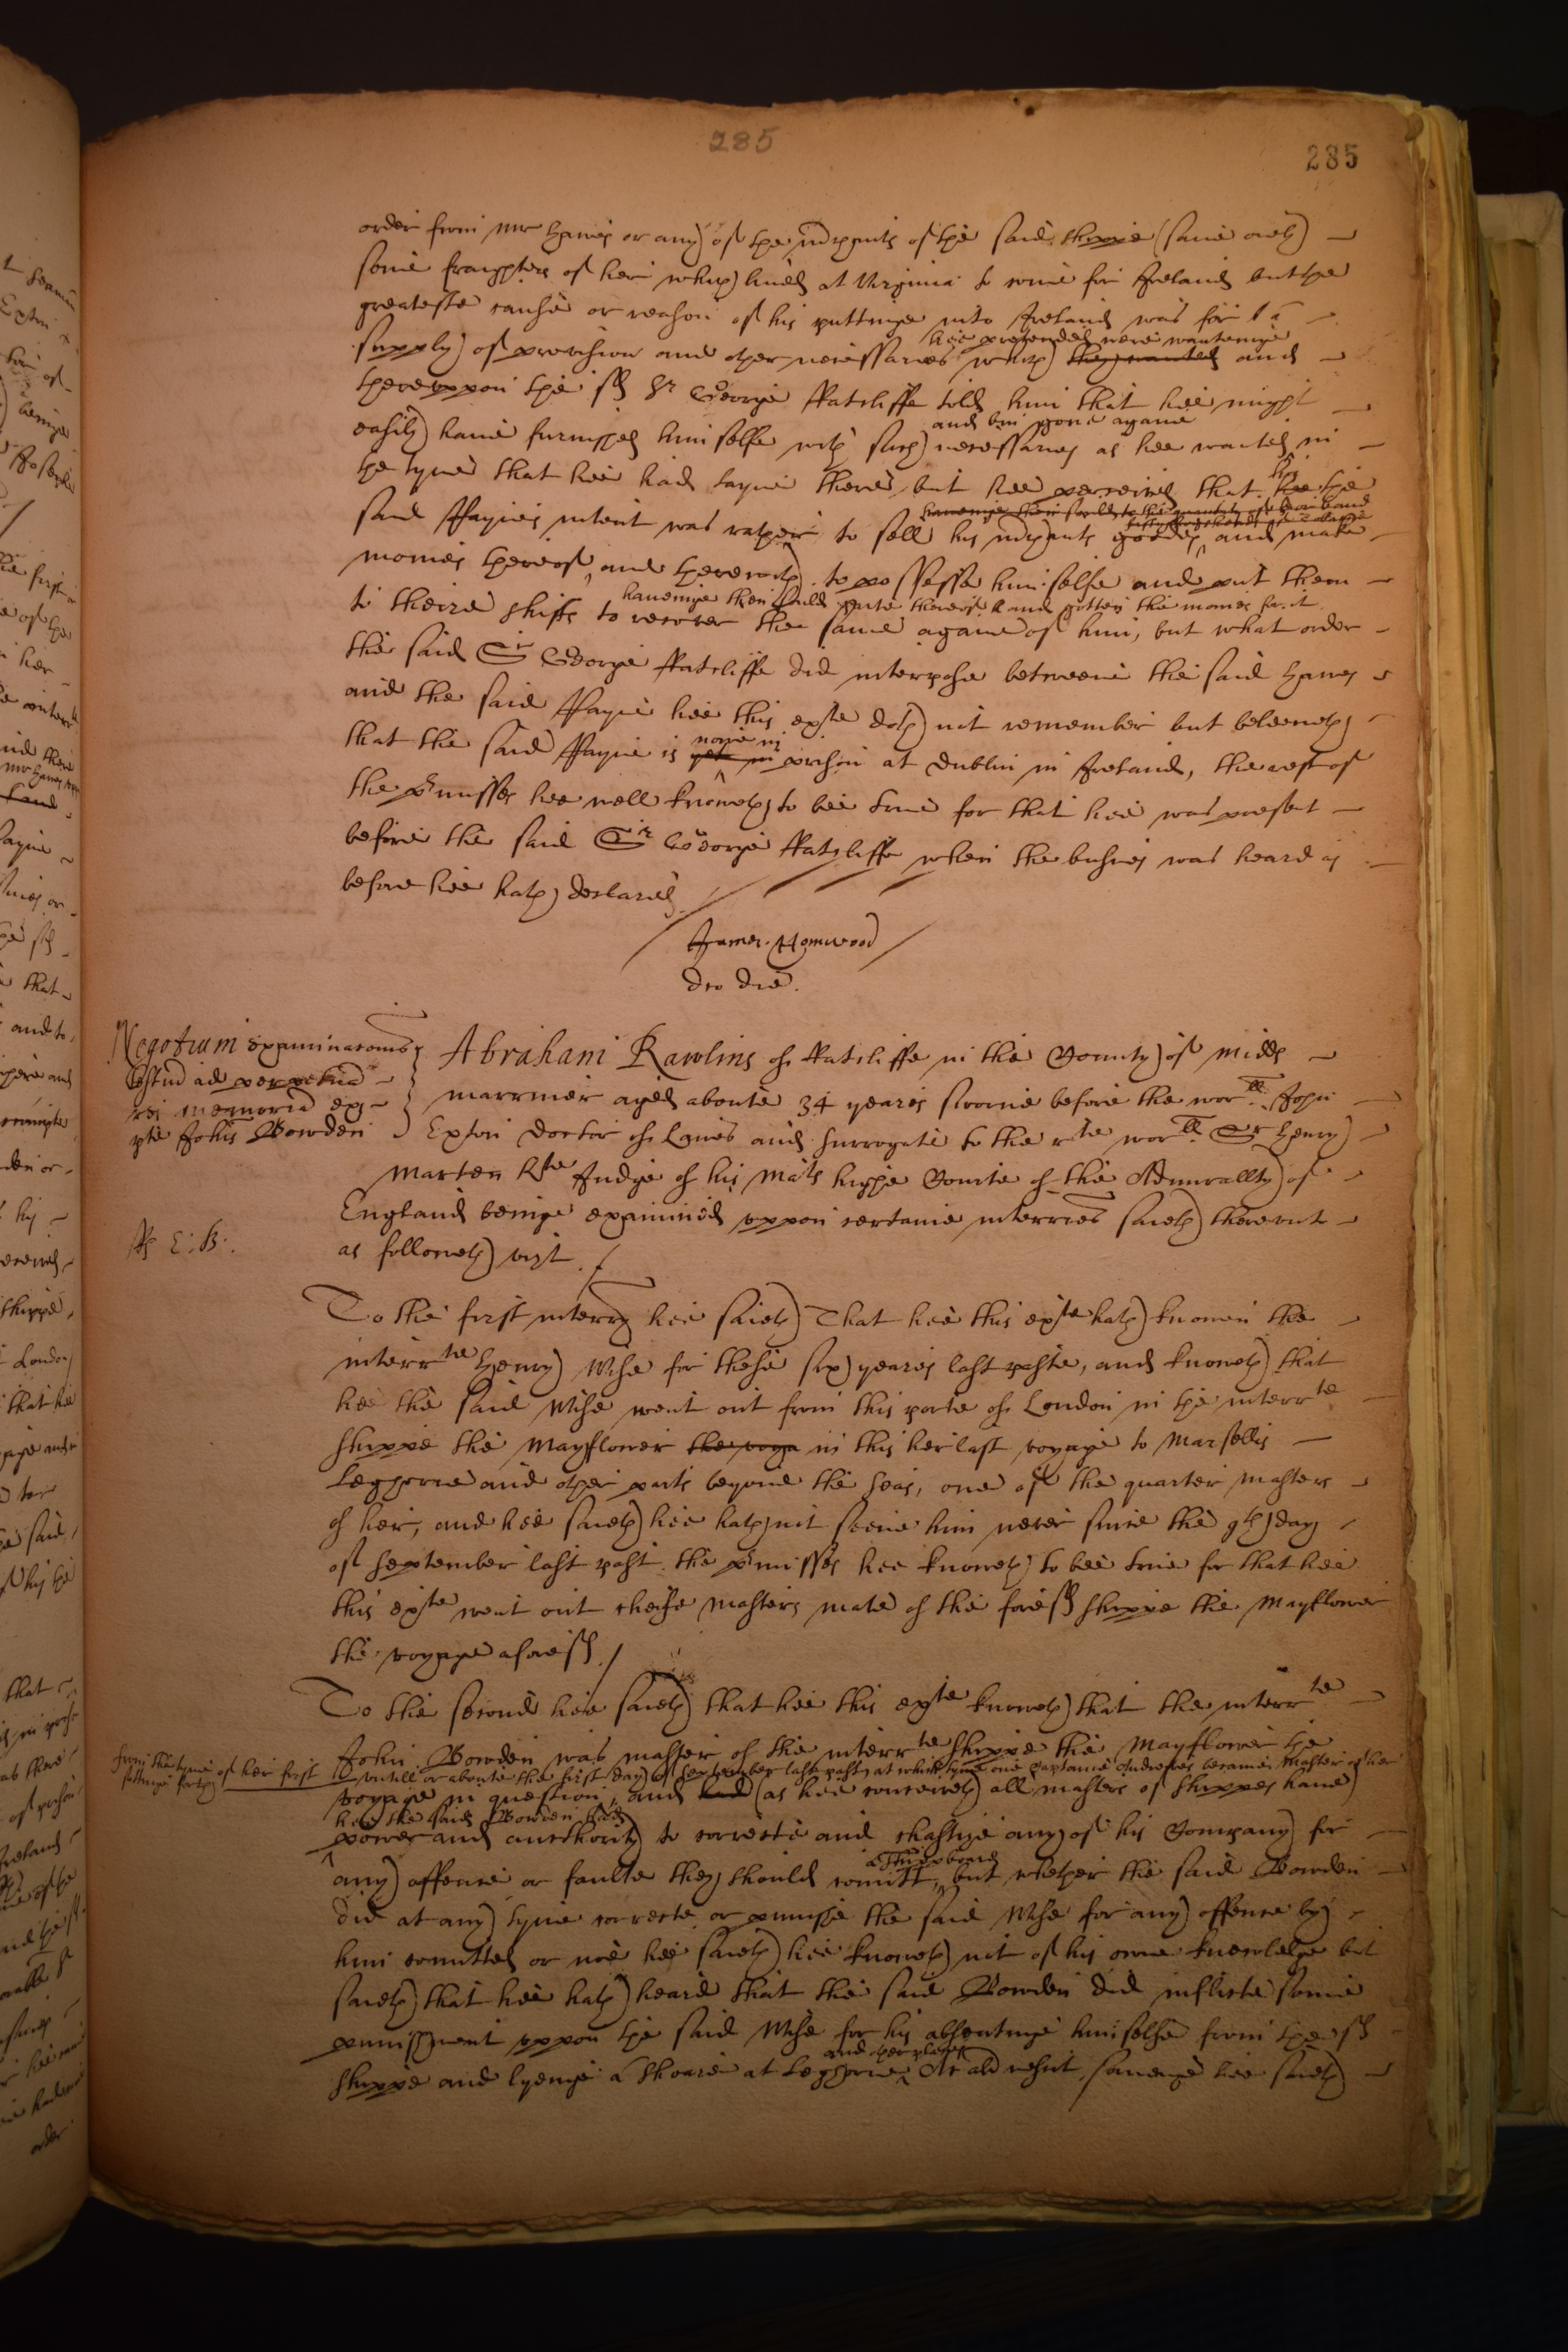 285
285
order from Mr Hawes or any of the mrchants of the said shippe (save onely)
some fraighters of her which lived at Virginia to come for Ireland but the
greateste cause or reason of his puttinge into Ireland was for
hee pretended were wantinge
supply of provision and other necessaries which they wanted and
thereuppon the sd Sr George Ratcliffe told him that hee might
and bin gone againe
easily have furnished himselfe with such necessaries as hee wanted in
the tyme that hee had layne there, but hee perceived that hee the
said Paynes intent was rather to sell his mrchants goodes, and make
monies thereof, and therewith to possesse himselfe and put them
haveinge then sould parte thereof and gotten the monies for it
to theire shifts to recover the same againe of him, but what order
the said Sr George Ratcliffe did interpose betweene the said Hawes
and the said Payne hee this exte doth not remember but beleeveth
nowe in
that the said Payne is yet in prison at Dublin in Ireland, the rest of
the prmisses hee well knoweth to bee true for that hee was present
before the said Sr George Ratcliffe when the busines was heard as
before hee hath declared
James Homwood
dco die.
Negotium examinaconis
testiu ad perpetua
rei memoria ex
pte Johis Bowden
Abraham Rawlins of Ratcliffe in the County of Midds
marriner aged aboute 34 yeares sworne before the worll John
Exton Doctor of Lawes and Surrogate to the rte worll Sr Henry
Marten Kte Judge of his Mats highe Courte of the Admirallty of
England beinge examined uppon certaine interries saieth thereunto
as followeth vizt.
E: B:
To the first interry hee saieth That hee this exte hath knowen the
interrte Henry Wise for these six yeares last paste, and knoweth that
hee the said Wise went out from this porte of London in the interrte
shippe the Mayflower the voya in this her last voyage to Marsellis
Leghorne and other parts beyond the Seas, one of the quarter masters
of her, and hee saieth hee hath not seene him never since the 9th day
of September last past. the prmisses hee knoweth to bee true for that hee
this exte went out cheife masters mate of the foresd shippe the Mayflower
the voyage aforesd.
To the second hee saieth that hee this exte knoweth that the interrte
John Bowden was master of the interrte shippe the Mayflower the
from the tyme of her first
settinge forth
untill or aboute the first day of September last past, at which tyme one Captaine Andrewes became Master of her
voyage in question, and had (as hee conceiveth all masters of shippes have)
hee the said Bowden had
power and aucthority to correcte and chastize any of his Company for
a Shippboard
any offence or faulte they should comitt, but whether the said Bowden
did at any tyme correcte or punishe the said Wise for any offence by
him comitted or noe hee saieth hee knoweth not of his owne knowledge but
saieth that hee hath heard that the said Bowden did inflicte some
punishment uppon the said Wise for his absentinge himselfe from the sd
and other places
shippe and lyenge a shoare at Leghorne, Et ald nescit, saveinge hee saieth